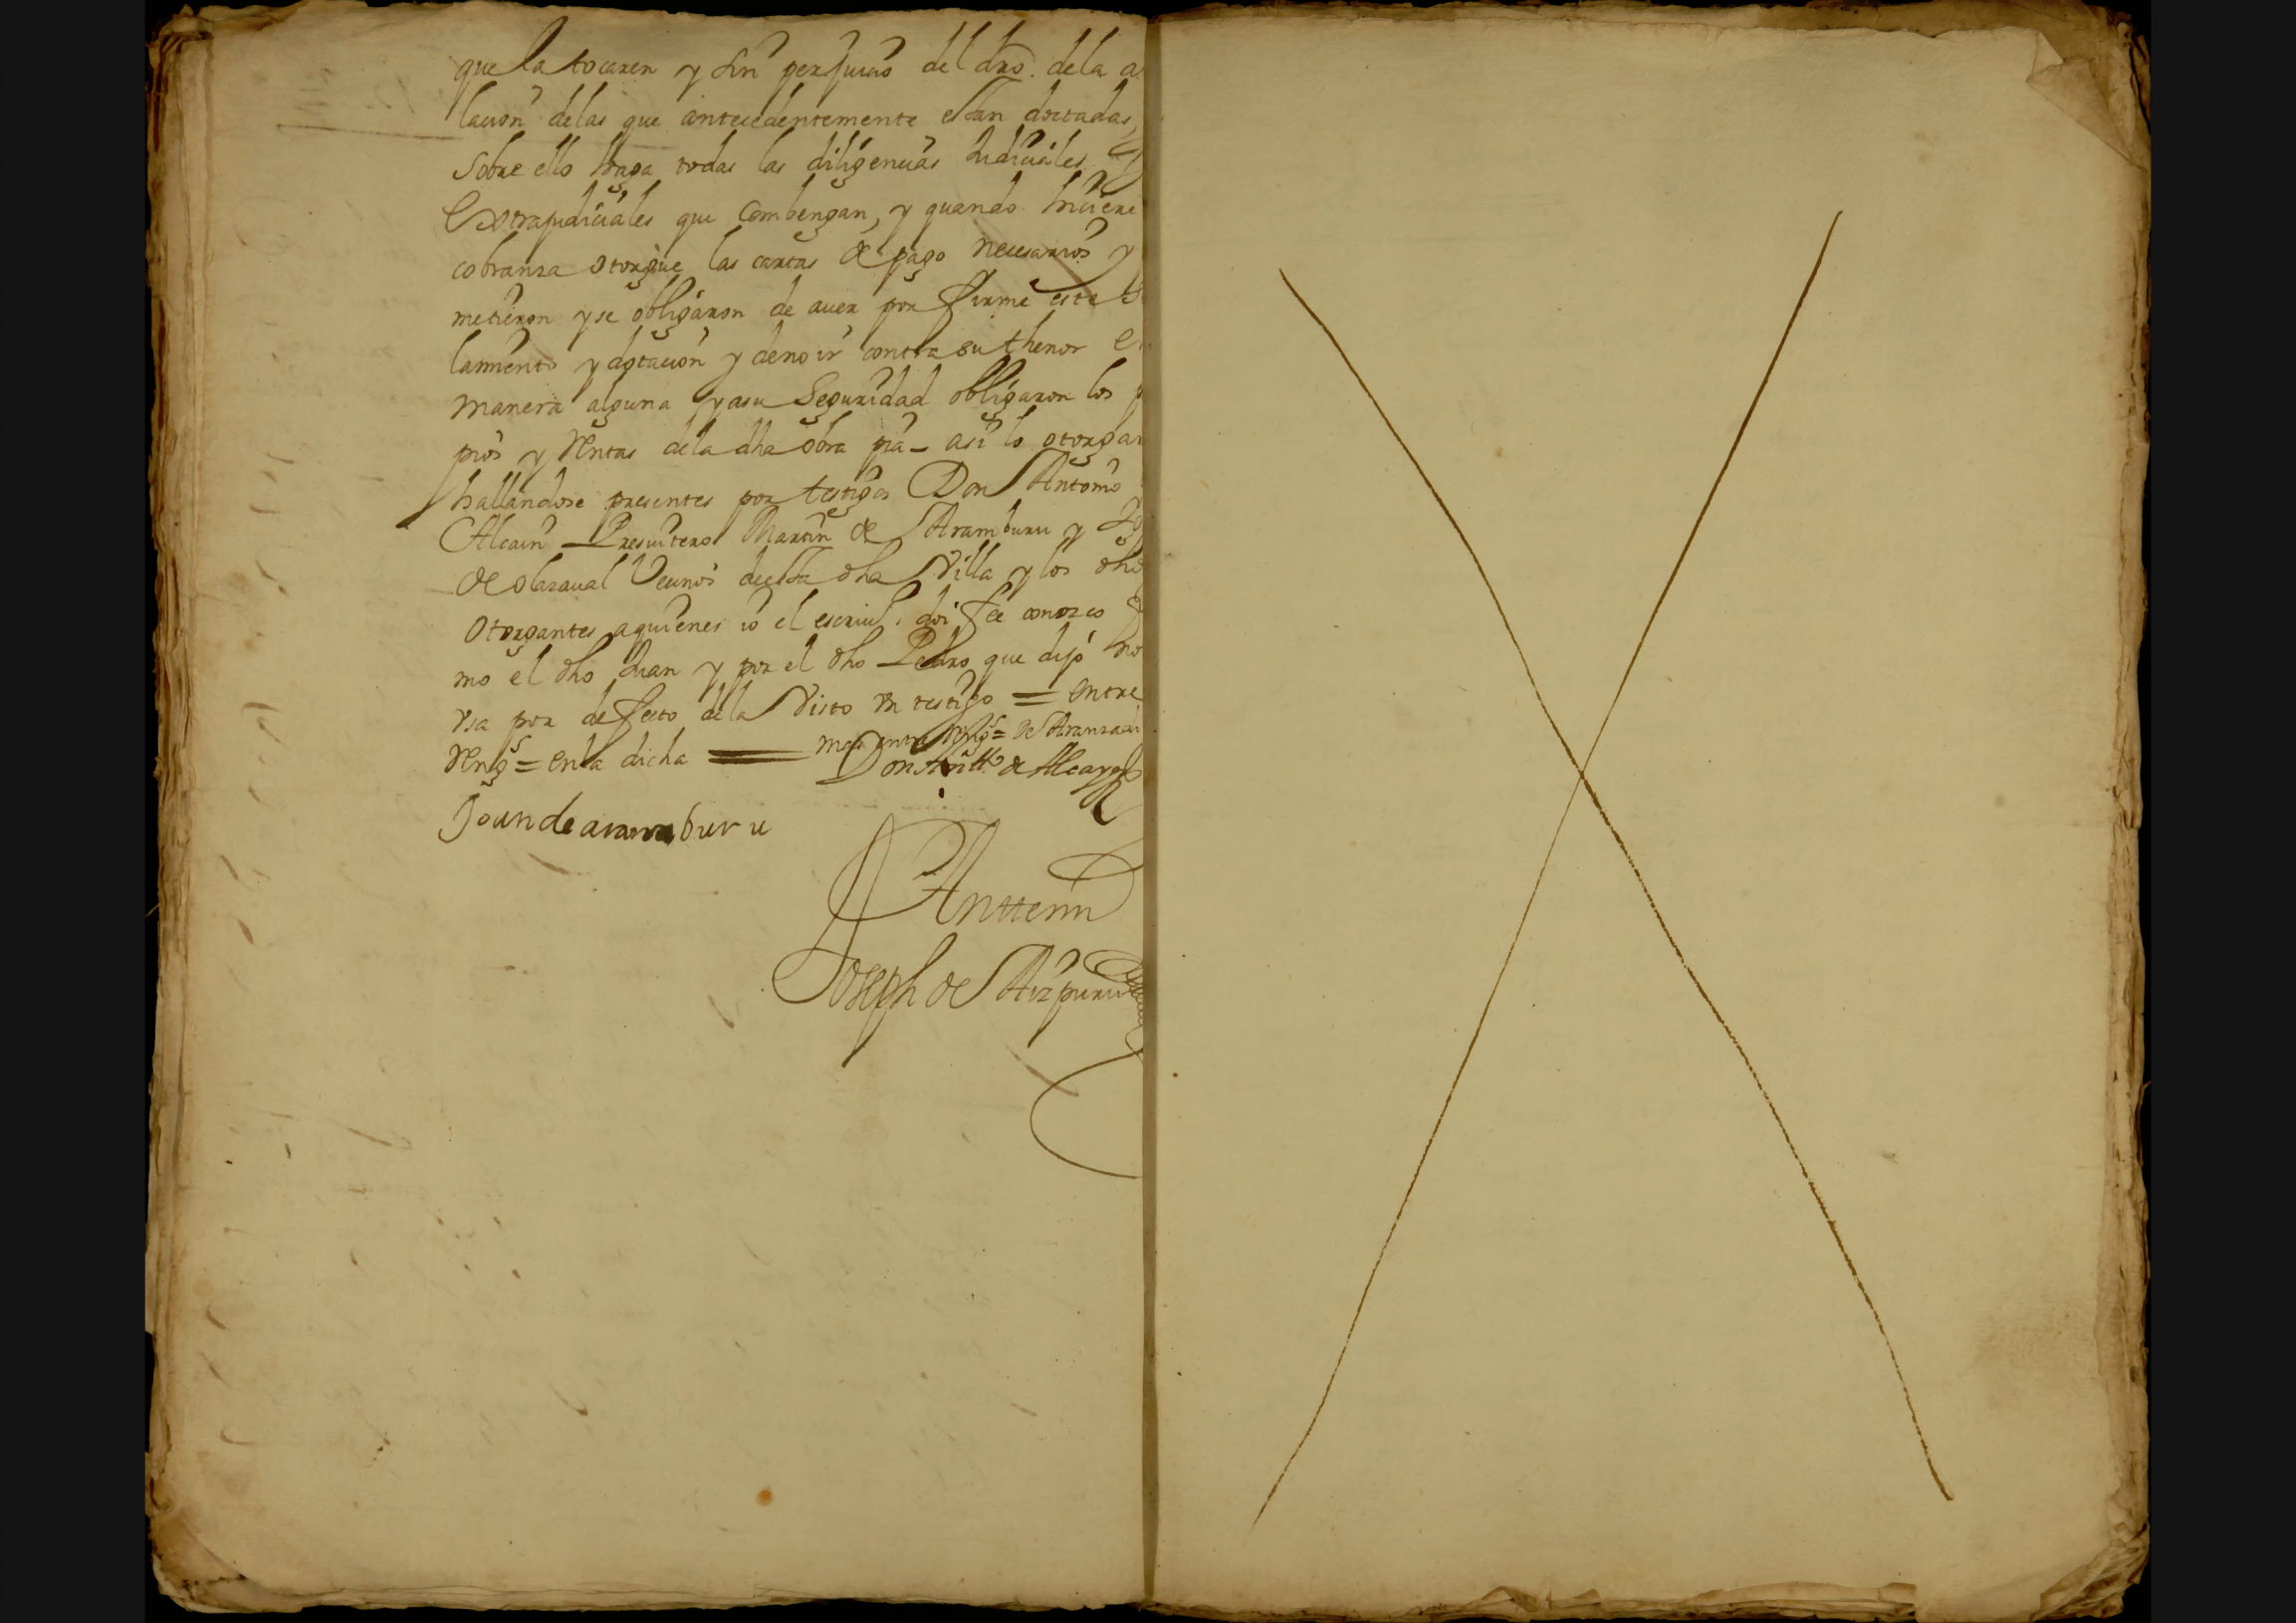 que la tocaren y sin perjuicio del dro. de la a
lacion delas que antecedentemente estan dotadas,
sobre ello haga todas las diligencias Judiciales y
Extrajudiciales que combengan, y quando hiciere
cobranza otorgue las cartas de pago necesarios y
metieron y se obligaron de auer por firme este
lamiento y dotacion y de no ir contra su thenor e
manera alguna y asu seguridad obligaron los p
pios y Rentas dela dha obra pia - asi lo otorgar
hallandose presentes por testigos Don Antonio
Alcain Presuitero Martin de Aramburu y
de olazaual Vecinos de esta dha Villa y los dho
otorgantes aquienes io el escriu.º doi fee conozco
mo el dho Juan y por el dho Pedro que dijo no
vsa por defecto dela Visto Vn testigo = entre
Reng.s = en la dicha = entre Reng.s = de Aranzadi
Don Antt.º de Alcayn
Joan de aramburu
Anttemi
Joseph de Aizpuru